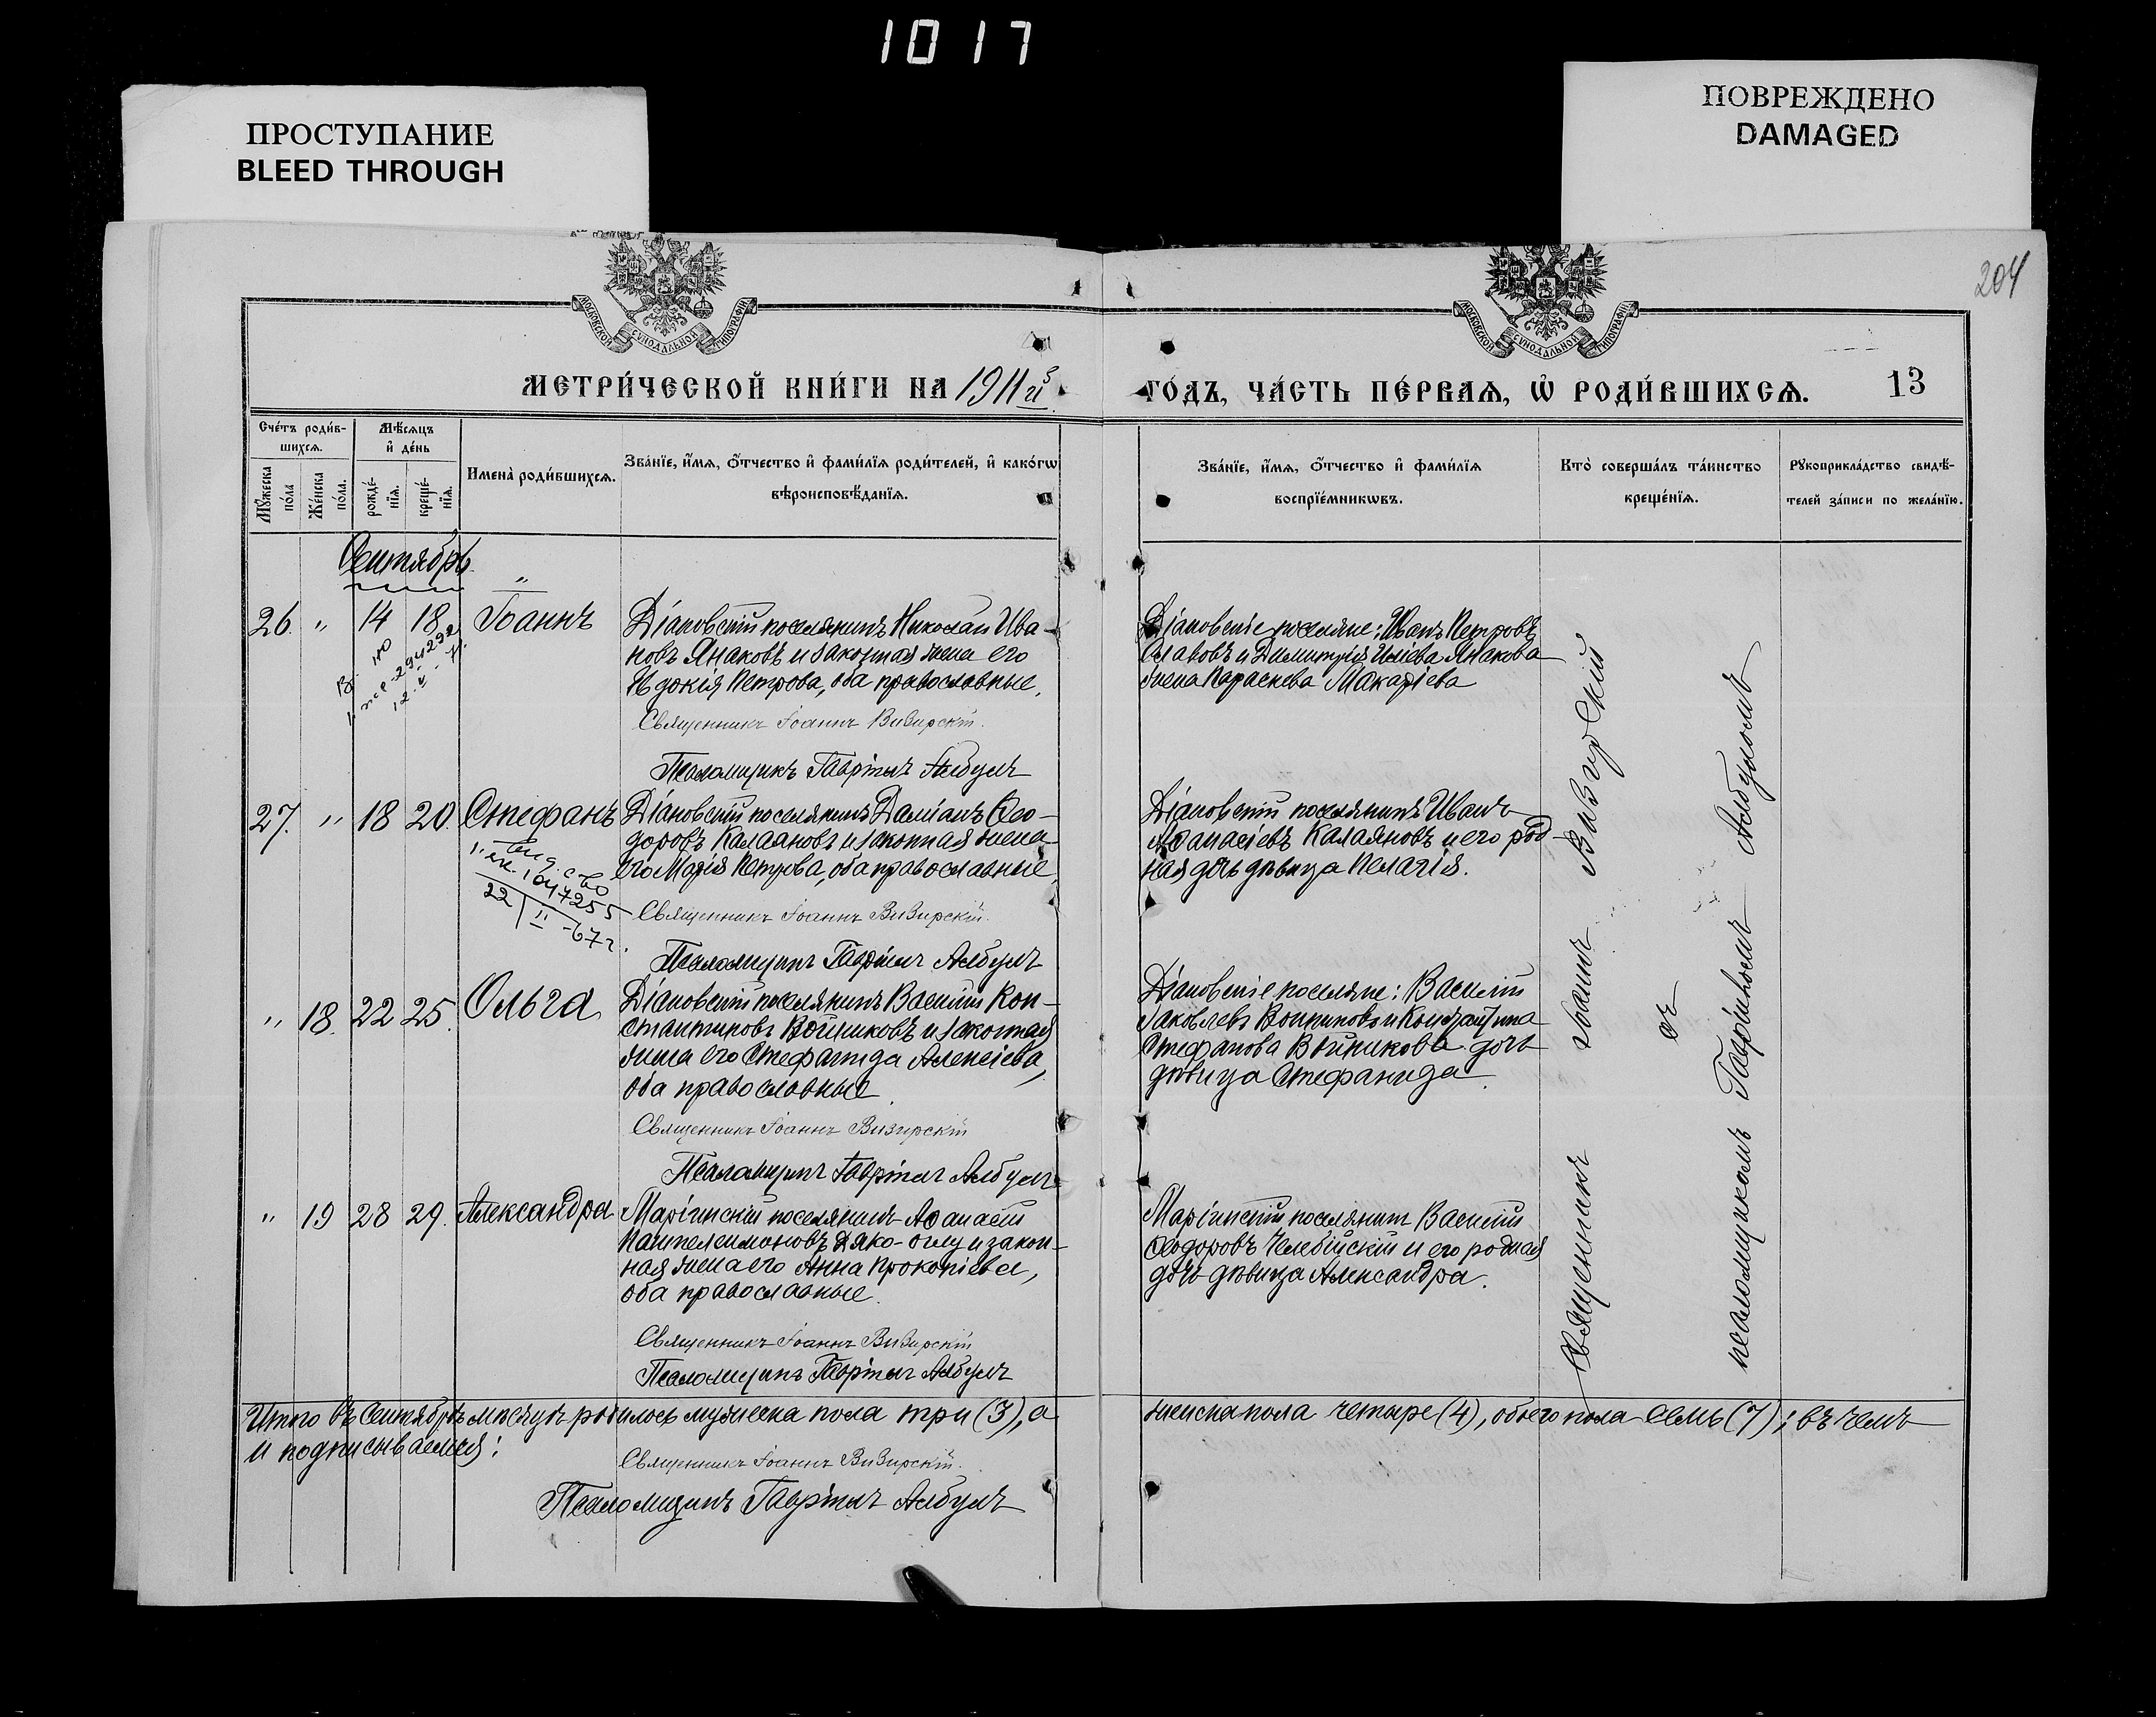 1017
ПРОСТУПАНИЕ
BLEED THROUGH
ПОВРЕЖДЕНО
DAMAGED
204
МОСКОВСКОЙ СУНОДАЛЬНОЙ ТИПОГРАФІИ
МОСКОВСКОЙ СУНОДАЛЬНОЙ ТИПОГРАФІИ
МЕТРИ́ЧЕСКОЙ КНИ́ГИ НА 1911й
ГО́ДЪ, ЧА́СТЬ ПЕ́РВАѦ, Ѡ҆ РОДИ́ВШИХСѦ. 13
Сче́тъ роди́в-
шихсѧ.
Мѣ́сѧцъ
и҆ де́нь
Мꙋ́жеска
по́ла
Же́нска
по́ла.
рожде́-
нїѧ.
креще́-
нїѧ.
Имена̀ роди́вшихсѧ.
Зва́нїе, и҆́мѧ, ѻ҆́тчество и҆ фами́лїѧ роди́телей, и҆ како́гѡ
вѣроисповѣ́данїѧ.
Зва́нїе, и҆́мѧ, ѻ҆́тчество и҆ фами́лїѧ
воспрїе́мникѡвъ.
Кто̀ соверша́лъ та́инство
креще́нїѧ.
Рꙋкоприкла́дство свидѣ́-
телей за́писи по жела́нїю.
Сентябрь
26. " 14 18 Іоаннъ
Діановскій поселянинъ Николай Ива-
новъ Янаковъ и законная жена его
Евдокія Петрова, оба православные.
Священникъ Іоаннъ Визирскій.
Псаломщикъ Гавріилъ Албулъ
Діановскіе поселяне: Иванъ Петровъ
Славовъ и Димитрія Иліева Янакова
жена Параскева Макаріева
27. " 18 20. Стефанъ
Діановскій поселянинъ Даміанъ Ѳео-
доровъ Калаяновъ и законная жена
его Марія Петрова, оба православные.
1047255
22/II-67г.
Священникъ Іоаннъ Визирскій.
Псаломщикъ Гавріилъ Албулъ
Діановскій поселянинъ Иванъ
Аѳанасіевъ Калаяновъ и его род-
ная дочь дѣвица Пелагія.
" 18. 22 25. Ольга
Діановскій поселянинъ Василій Кон-
стантиновъ Войниковъ и законная
жена его Стефанида Алексіева,
оба православные.
Священникъ Іоаннъ Визирскій
Псаломщикъ Гавріилъ Албулъ
Діановскіе поселяне: Василій
Іаковлевъ Войниковъ и Константина
Стефанова Войникова дочь
дѣвица Стефанида.
" 19 28 29. Александра
Маріинскій поселянинъ Аѳанасій
Пантелеимоновъ Дяко-оглу и закон-
ная жена его Анна Прокопіева,
оба православные.
Священникъ Іоаннъ Визирскій
Псаломщикъ Гавріилъ Албулъ
Маріинскій поселянинъ Василій
Ѳеодоровъ Челебійскій и его родная
дочь дѣвица Александра.
Священникъ Іоаннъ Визирскій
съ
псаломщикомъ Гавріиломъ Албуломъ
Итого въ Сентябрѣ мѣсяцѣ родилось мужеска пола три (3), а
женска пола четыре (4), обоего пола семь (7); въ чемъ
и подписываемся:
Священникъ Іоаннъ Визирскій.
Псаломщикъ Гавріилъ Албулъ